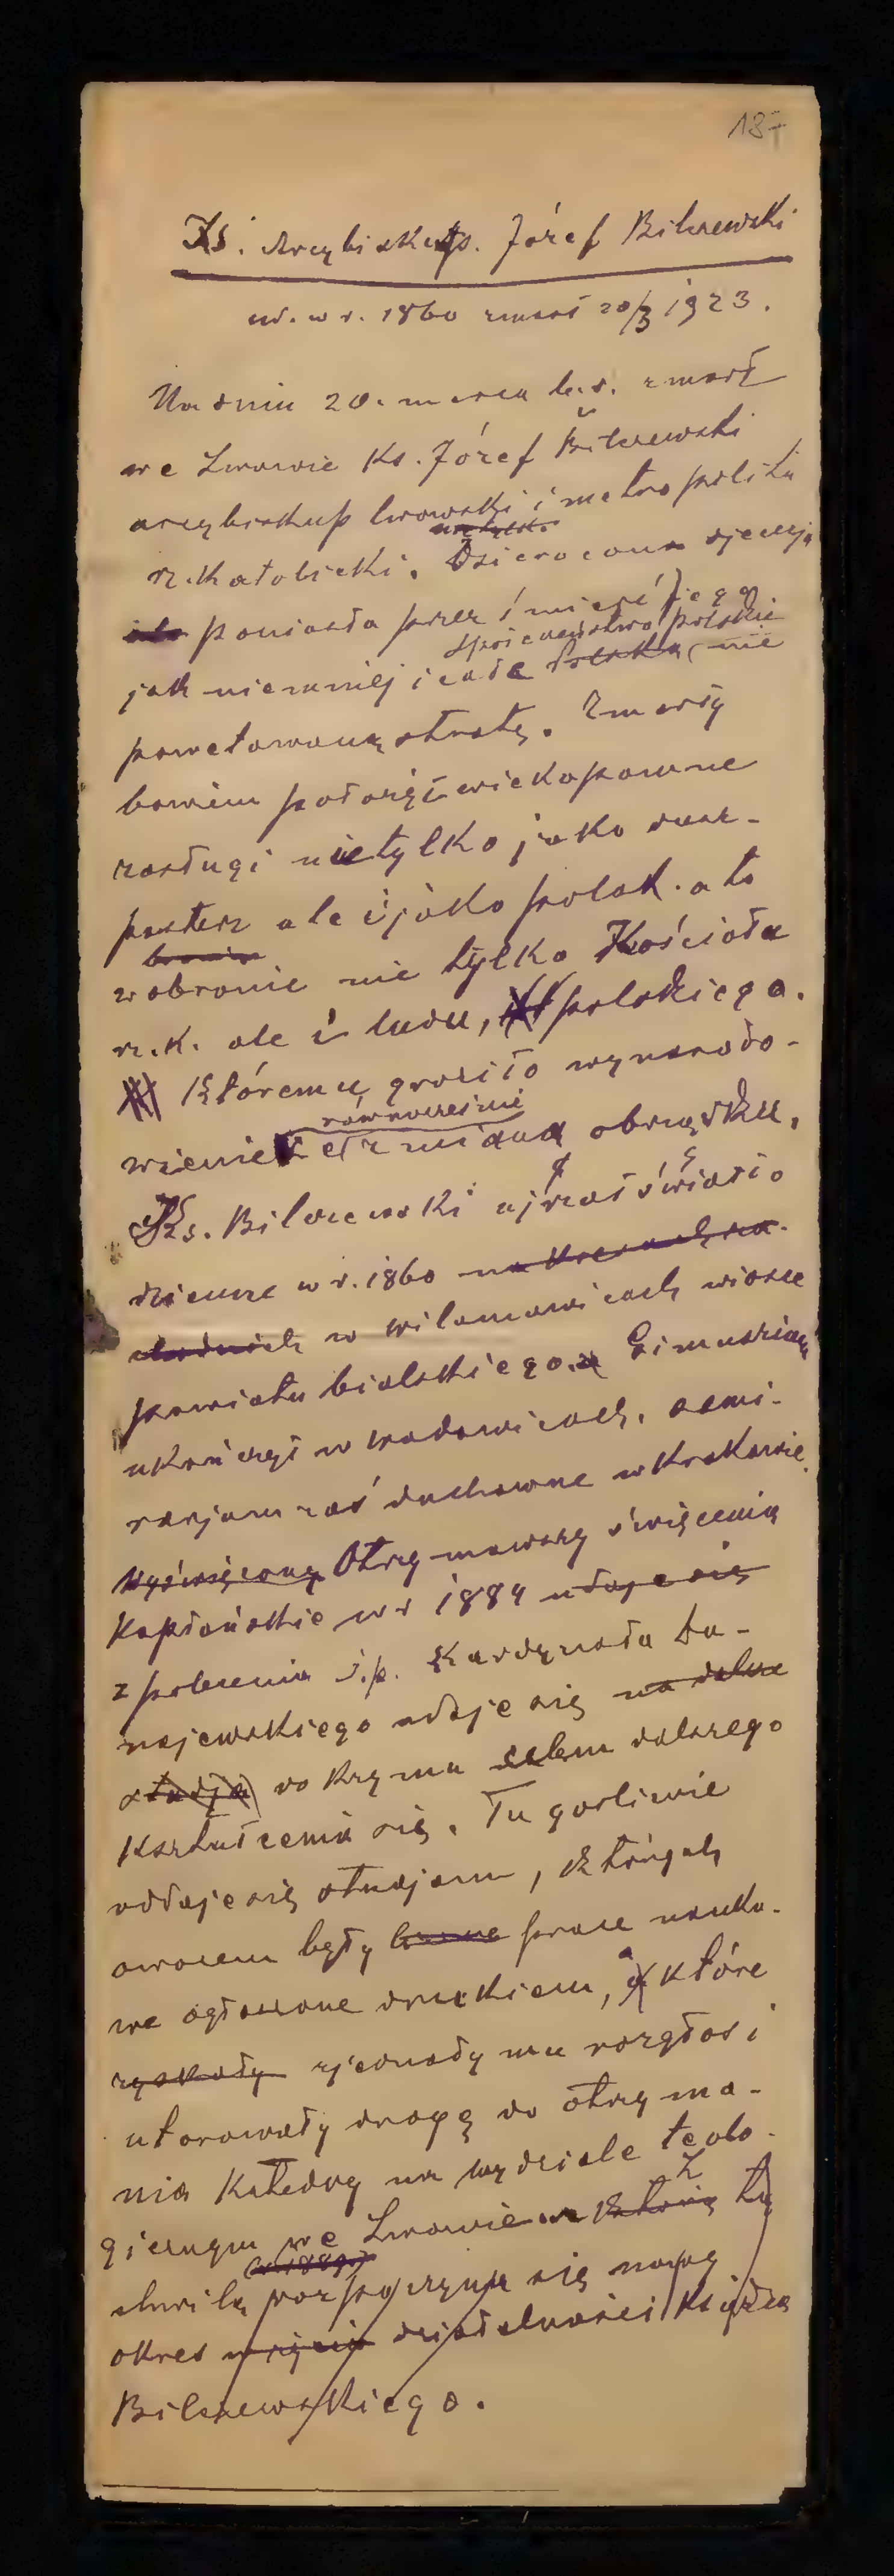 187
Ks. Arcybiskup. Józef Bilczewski
ur. w r. 1860 zmarł 20/3 1923.
Na dniu 20. marca b.r. zmarł
we Lwowie Ks. Józef Bilczewski
arcybiskup lwowski i metropolita
rz. katolicki. Osierocona djecezja
poniosła przez śmierć jego
społeczeństwo polskie
jak niemniej i całe Polska, nie
powetowaną stratę. Zmarły
bowiem położył wiekopomne
zasługi nietylko jako dusz-
pasterz ale i jako polak. a to
bronią
w obronie nie tylko Kościoła
rz.k. ale i ludu, polskiego.
któremu groziło wynarodo-
równocześnie
wienie ze zmianą obrządku.
Ks. Bilczewski ujrzał światło
dzienne w r. 1860 na kresach za-
chodnich w Wilamowicach wiosce
powiatu bialskiego. Gimnazium
ukończył w Wadowicach, semi-
narjum zaś duchowne w Krakowie.
Wyświęcony Otrzymawszy święcenia
Kapłańskie w r 1884 udaje się
z polecenia ś.p. Kardynała Du-
najewskiego udaje się na dalsze
studja do Rzymu celem dalszego
Kształcenia się. Tu gorliwie
oddaje się studjom, których
owocem były liczne prace nauko-
we ogłoszone drukiem, a które
zyskały zjednały mu rozgłos i
utorowały drogę do otrzyma-
nia Katedry na wydziale teolo-
gicznym we Lwowie w którą Z tą
(w 1889.)
chwilą rozpoczyna się nowy
okres w życiu działalności księdza
Bilczewskiego.